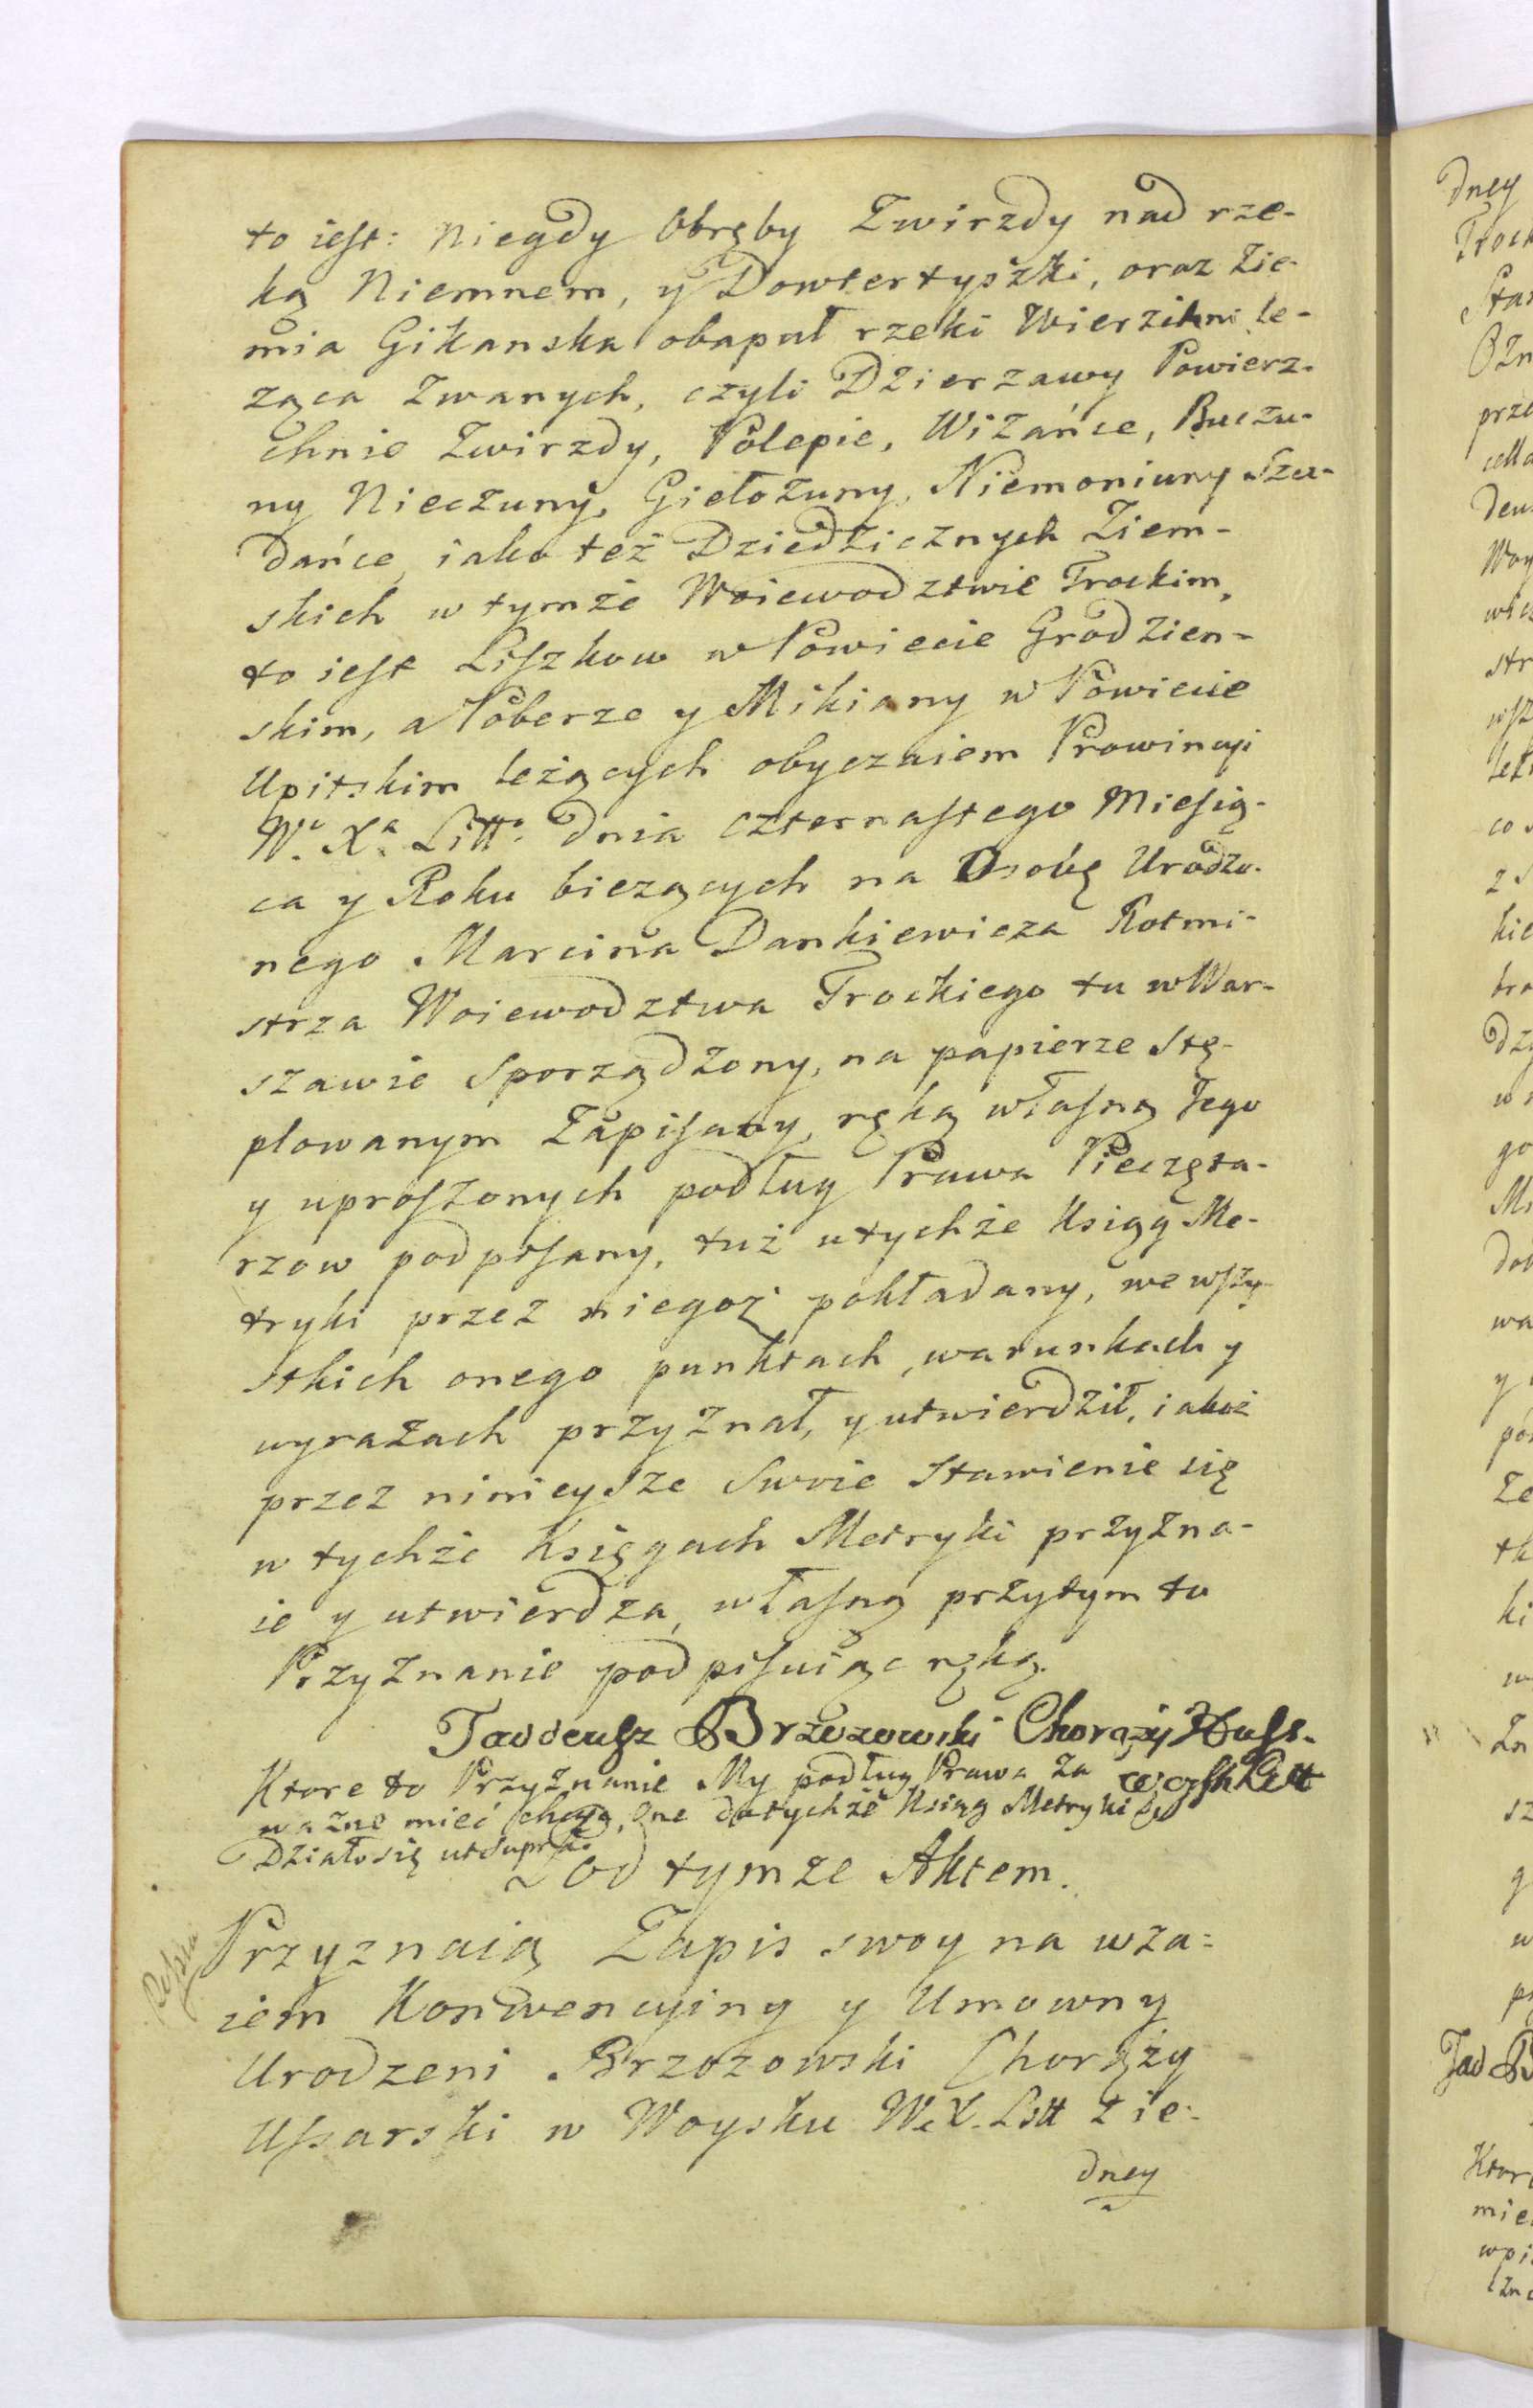 to iest: Niegdy Obręby Zwirzdy nad rze-
ką Niemnem, y Dowtertyszki, oraz Zie-
mia Gikanska obaput rzeki Wierzchni le-
żąca Zwanych, czyli Dzierzawy Powierz-
chnie Zwirzdy, Polepie, Wizańce, Buczu-
ny Nieczuny, Giełożuny, Niemoniuny Szu-
dańce, iako też Dziedzicznych Ziem-
skich w tymże Woiewodztwie Trockim,
to iest Liszkow w Powiecie Grodzien-
skim, a Poberze y Mikiany w Powiecie
Upitskim leżących obyczaiem Prowincyi
W. X. Litt. dnia czternastego Miesią-
ca y Roku bieżących na Osobę Urodzo-
nego Marcina Dankiewicza Rotmi-
strza Woiewodztwa Trockiego tu w War-
szawie Sporządzony, na papierze Stę-
plowanym Zapisany, ręką własną Jego
y uproszonych podług Prawa Pieczęta-
rzow podpisany, tuż utychże Ksiąg Me-
tryki przez niegoż pokładany, we wszy-
stkich onego punktach, warunkach y
wyrazach przyznał, y utwierdził, iakoż
przez ninieysze Swoie Stawienie się
w tychże Księgach Metryki przyzna-
ie y utwierdza, własną przytym to
Przyznanie podpisuiąc ręką.
Taddeusz Brzozowski Chorąży Huss.
woysk Litt
Ktore to Przyznanie My podług Prawa Za
ważne mieć chcąc, One dotychże Ksiąg Metryki
Działo się ut Supra.
Pod tymże Aktem.
Przyznaią Zapis swoy na wza-
iem Konwencyiny y Umowny
Urodzeni Brzozowski Chorąży
Ussarski w Woysku W. X. Litt Zie-
dney
dney
Trock
Star
prze
Woy
wicz
str
wsz
co
z
kie
bra
dzy
go
wa
y
ki
w
sz
g
w
Tad B
Ktor
mie
wpi